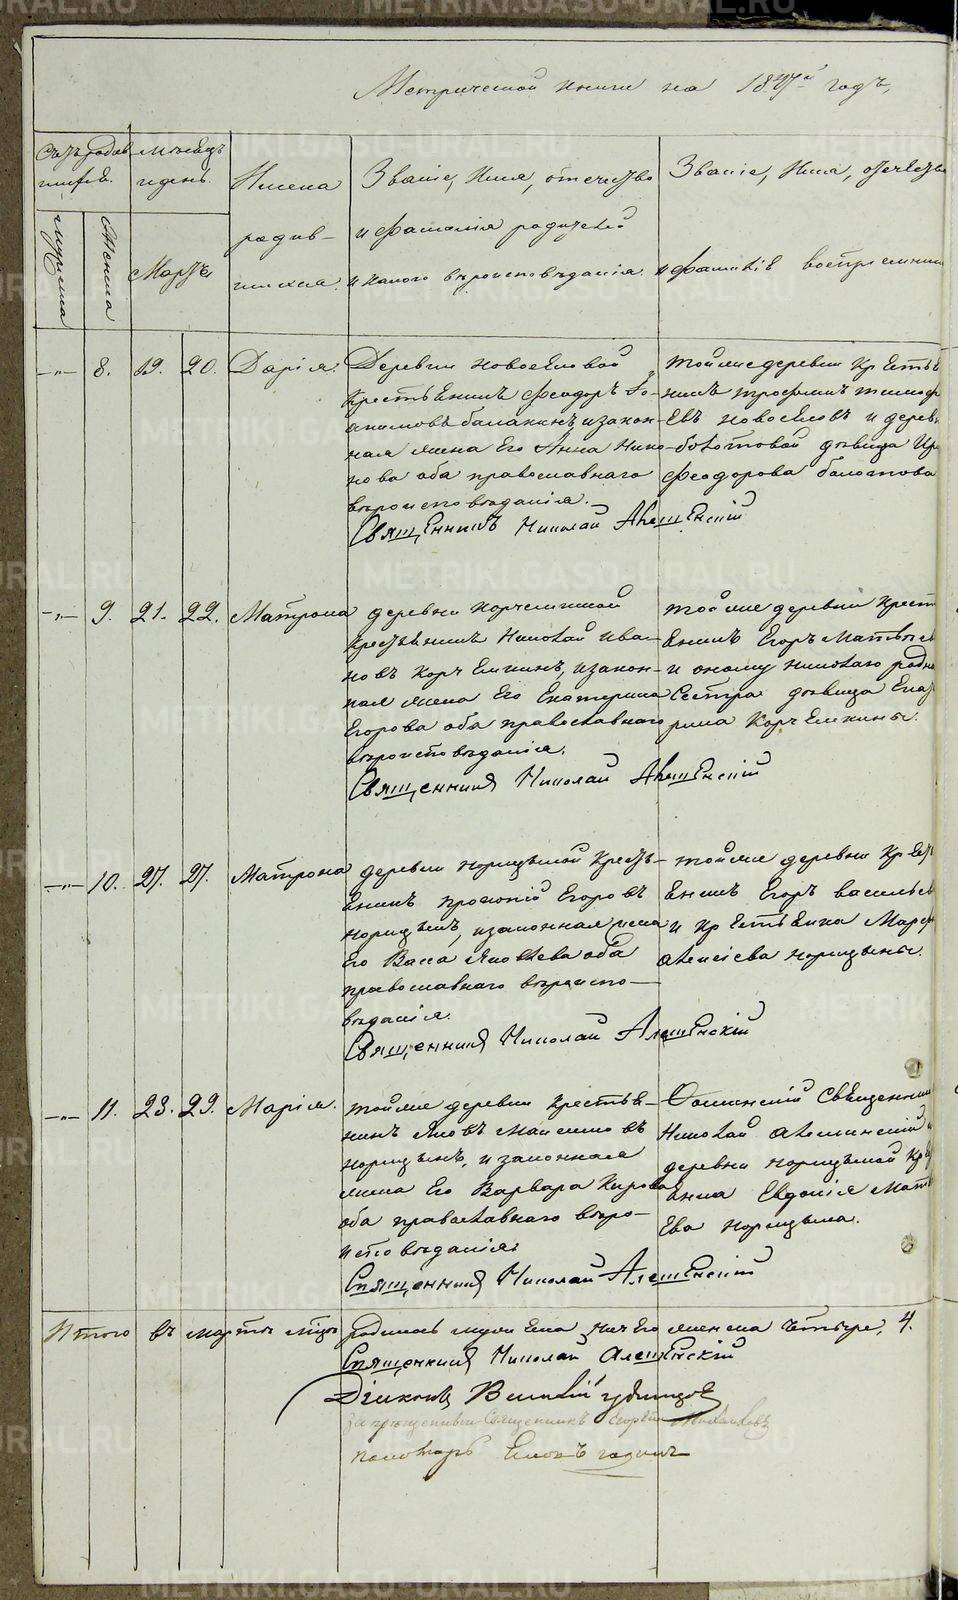 Метрической книги на 1847й годъ,
Счетъ родив шихся.
Мужеска
Женска
мѣсяцъ и день
Мартъ
Имена родив- шихся.
Званіе, Имя, отечество и фамилія родителей и какого вѣроисповѣданія.
Званіе, Имя, отечество и фамилія воспріемник
-"- 8. 19. 20. Дарія.
Деревни Новоселовой
крестьянинъ Феодоръ
Балакинъ и закон-
ная жена Его Анна
оба православнаго
вѣроисповѣданія.
Священникъ Николай Алешенскій
Той же деревни Крестья
нинъ Трофимъ
Новоселовъ и дерев
Болотовой дѣвица
Феодорова Болотова
-"- 9. 21. 22. Матрона
деревни Корчемкиной
Крестьянинъ Николай Ива-
новъ Корчемкинъ, и закон-
ная жена Его Екатерина
Егорова оба православнаго
вѣроисповѣданія.
Священникъ Николай Алешенскій
той же деревни Крест
янинъ Егоръ
и оному Николаю родна
Сестра дѣвица Екат
рина Корчемкины.
-"- 10. 27. 27. Матрона
деревни Норицыной Кресть-
янинъ Прокопій Егоровъ
Норицынъ, и законная жена
Его Васса Яковлева оба
православнаго вѣроиспо-
вѣданія.
Священникъ Николай Алешенскій
той же деревни Крест
янинъ Егоръ Васильев
и Крестьянка Марф
Алексіева Норицыны.
-"- 11. 28. 29. Марія.
той же деревни Крестья-
нинъ Яковъ Максимовъ
Норицынъ, и законная
жена Его Варвара Кирова
оба православнаго вѣро-
исповѣданія.
Священникъ Николай Алешенскій
Священник
Николай Алешинскій и
деревни Норицыной Кр
янка Евдокія Матв
ева Норицына.
Итого въ мартѣ мцѣ родилось мужеска ничего женска четыре, 4.
Священникъ Николай Алешенскій
Діаконъ Василій
Священникъ Георгій
Пономарь